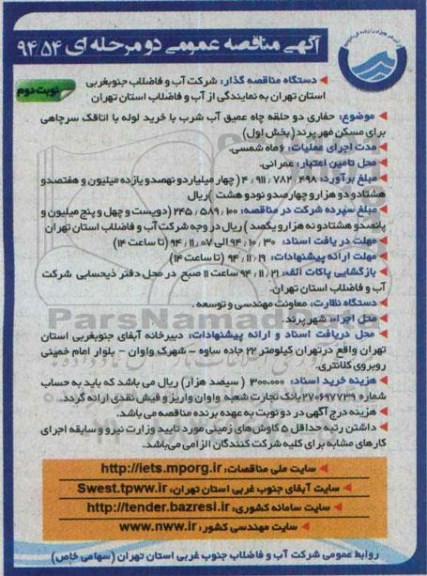 آگهی مناقصه عمومی دو مرحله ای ۵۴-۹۴
نوبت دوم
دستگاه مناقصه گذار: شرکت آب و فاضلاب جنوبغربی
استان تهران به نمایندگی از آب و فاضلاب استان تهران
موضوع: حفاری دو حلقه چاه عمیق آب شرب با خرید لوله با اتاقک سرچاهی
برای مسکن مهر پرند (بخش اول)
مدت اجرای عملیات: ۶ ماه شمسی.
محل تامین اعتبار: عمرانی.
مبلغ برآورد: ۴/۹۱۱/۷۸۲/۴۹۸ (چهار میلیارد و نهصد و یازده میلیون و هفتصد و
هشتاد و دو هزار و چهارصد و نود و هشت) ریال
مبلغ سپرده شرکت در مناقصه: ۲۴۵/۵۸۹/۱۰۰ (دویست و چهل و پنج میلیون و
پانصد و هشتاد و نه هزار و یکصد) ریال در وجه شرکت آب و فاضلاب استان تهران
مهلت دریافت اسناد: ۹۴/۱۰/۳۰ الی ۹۴/۱۱/۰۷ (تا ساعت ۱۴)
مهلت ارائه پیشنهادات: ۹۴/۱۱/۱۹ (تا ساعت ۱۴)
بازگشایی پاکات الف: ۹۴/۱۱/۲۱ ساعت ۱۱ صبح در محل دفتر ذیحسابی شرکت
آب و فاضلاب استان تهران.
دستگاه نظارت: معاونت مهندسی و توسعه.
محل اجرا: شهر پرند.
محل دریافت اسناد و ارائه پیشنهادات: دبیرخانه آبفای جنوبغربی استان
تهران واقع در تهران کیلومتر ۲۲ جاده ساوه - شهرک واوان - بلوار امام خمینی
روبروی کلانتری.
هزینه خرید اسناد: ۳۰۰/۰۰۰ (سیصد هزار) ریال می باشد که باید به حساب
شماره ۲۷۰۶۹۷۷۳۹ بانک تجارت شعبه واوان واریز و فیش نقدی ارائه گردد.
هزینه درج آگهی در دو نوبت به عهده برنده مناقصه می باشد.
داشتن رتبه حداقل ۵ کاوش های زمینی مورد تایید وزارت نیرو و سابقه اجرای
کارهای مشابه برای کلیه شرکت کنندگان الزامی می باشد.
سایت ملی مناقصات: http://iets.mporg.ir
سایت آبفای جنوب غربی استان تهران: Swest.tpww.ir
سایت سامانه کشوری: http://tender.bazresi.ir
سایت مهندسی کشور: www.nww.ir
روابط عمومی شرکت آب و فاضلاب جنوب غربی استان تهران (سهامی خاص)
ParsNamad